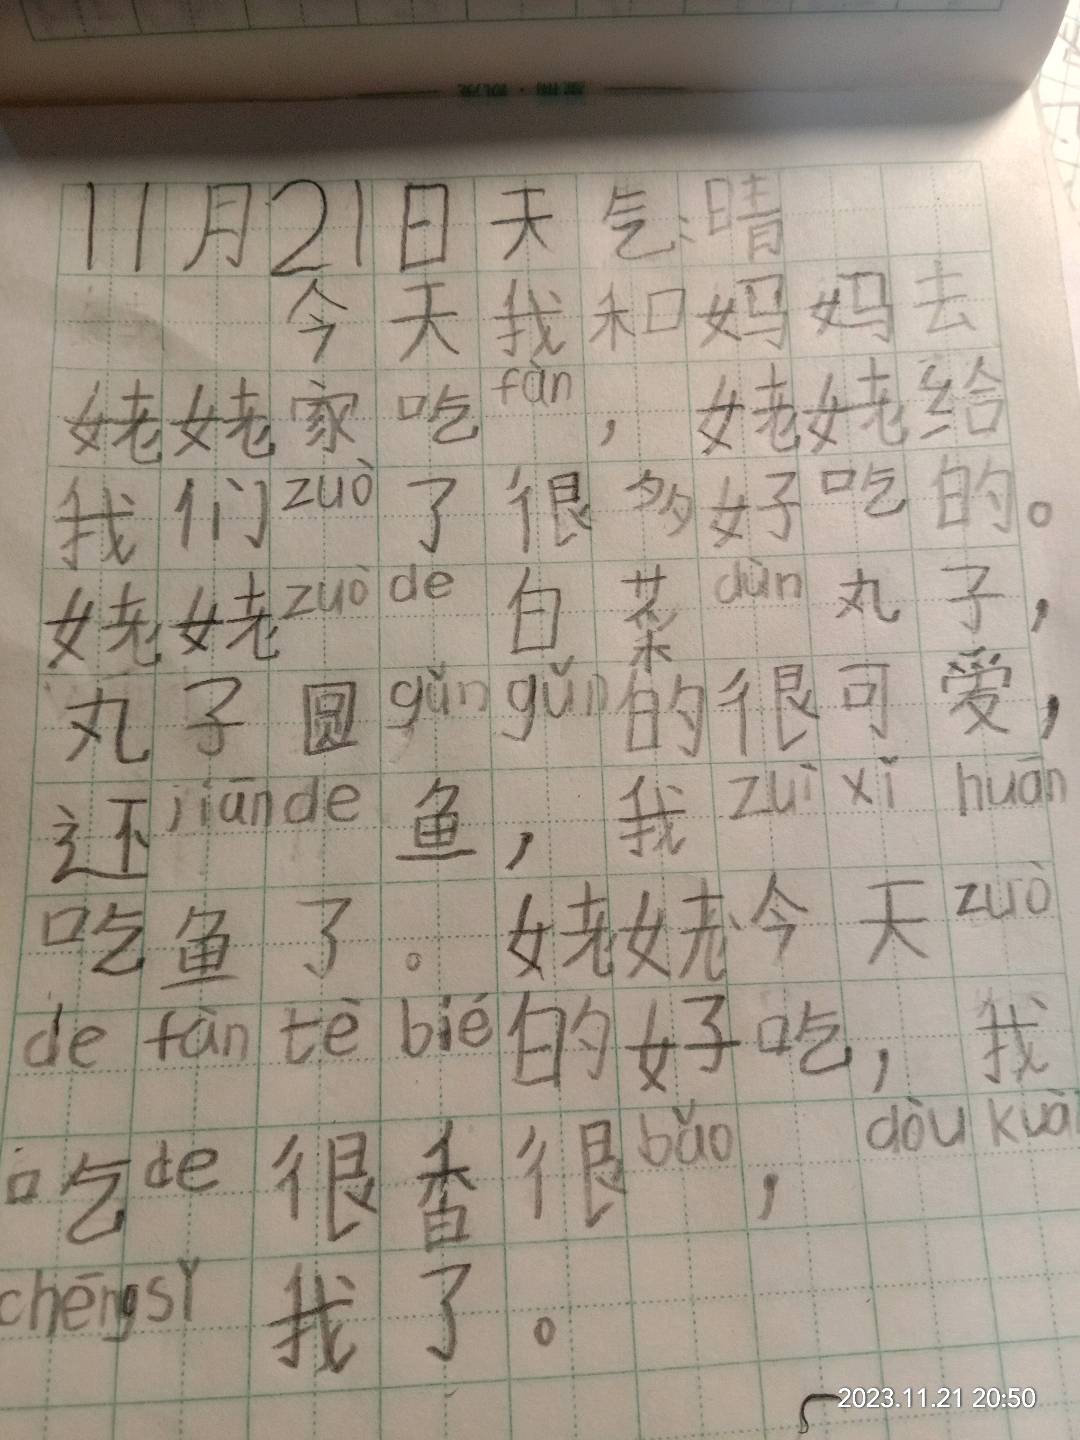 11月21日天气:晴
今天我和妈妈去
姥姥家吃fàn，姥姥给
我们zuò了很多好吃的。
姥姥zuò de白菜dùn丸子，
丸子圆gǔn gǔn的很可爱，
还jiān de鱼，我zuì xǐ huān
吃鱼了。姥姥今天zuò
de fàn tè bié的好吃，我
吃de很香很bǎo，dòu kuài
chēng sǐ我了。
2023.11.21 20:50